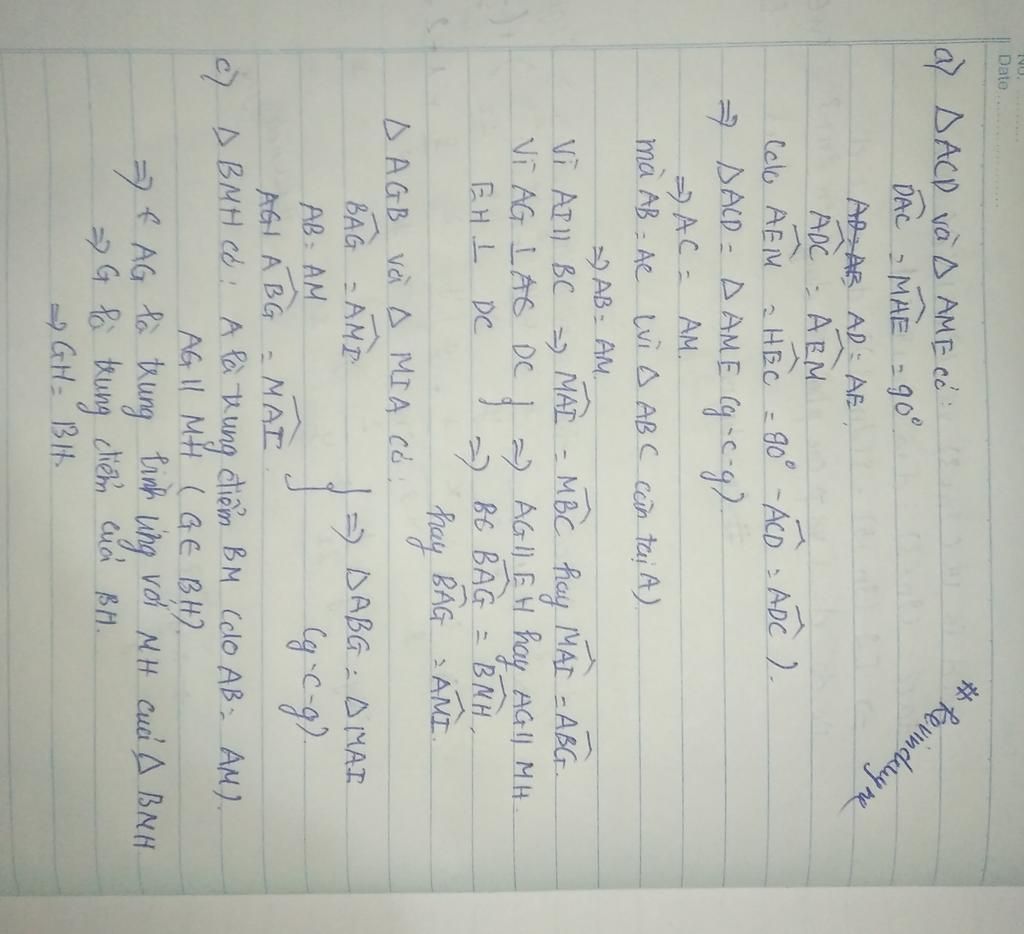 No. ........
Date ........
# Kevinduy2
a) Δ ACD và Δ AME có:
DAC = MAE = 90°
AD = AB AD = AE
ADC = AEM
(do AEM = HEC = 90° - ACD = ADC).
⇒ Δ ACD = Δ AME (g-c-g).
⇒ AC = AM.
mà AB = AC (vì Δ ABC cân tại A)
⇒ AB = AM.
Vì AI // BC ⇒ MAI = MBC hay MAI = ABG.
Vì AG ⊥ AC DC } ⇒ AG // EH hay AG // MH.
EH ⊥ DC ⇒ BE BAG = BMH.
hay BAG = AMI.
Δ AGB và Δ MIA có:
BAG = AMI
AB = AM } ⇒ Δ ABG = Δ MAI
AGH ABG = MAI. (g-c-g).
c) Δ BMH có: A là trung điểm BM (do AB = AM).
AG // MH (G ∈ BH).
⇒ AG là trung bình ứng với MH của Δ BMH.
⇒ G là trung điểm của BH.
⇒ GH = BH.